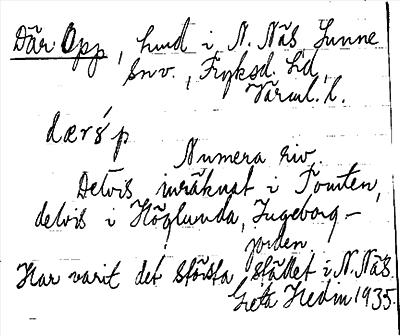 Där Opp, hmd i N. Näs, Sunne
snv., Fryksd. hd,
Värml. l.
dærṡ́p
Numera riv.
Delvis inräknat i Tomten,
delvis i Höglunda, Ingeborg-
jorden
Har varit det största stället i N. Näs.
Greta Hedin 1935.